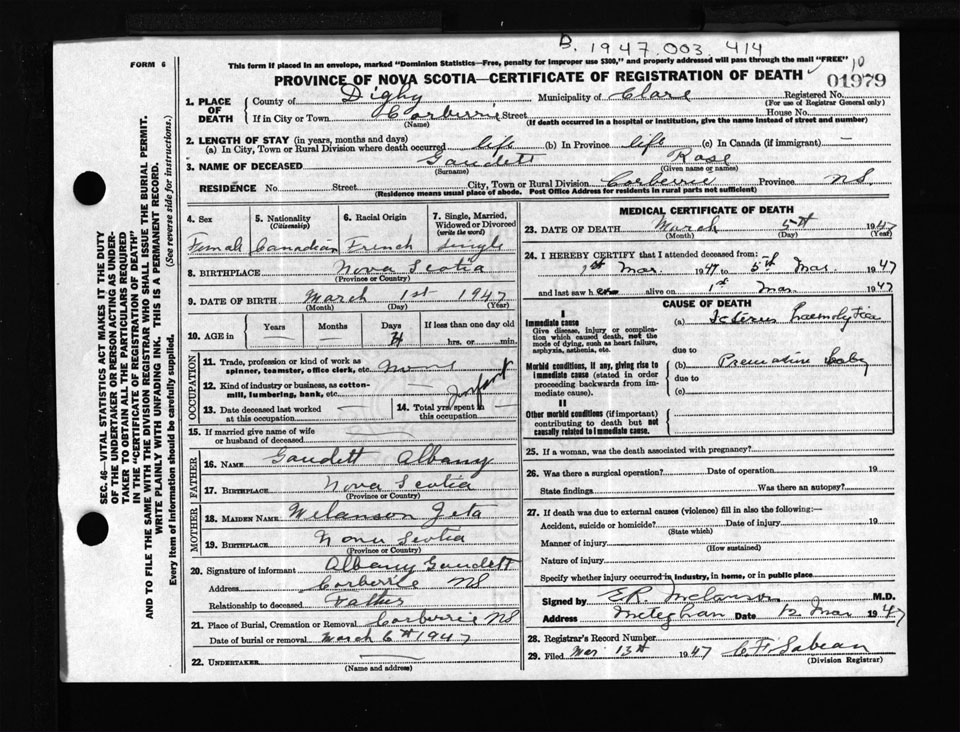 B. 1947.003.414
FORM 6
This form if placed in an envelope, marked "Dominion Statistics—Free, penalty for improper use $300," and properly addressed will pass through the mail "FREE"
10
PROVINCE OF NOVA SCOTIA—CERTIFICATE OF REGISTRATION OF DEATH
01979
1. PLACE OF DEATH
County of Digby Municipality of Clare Registered No.
(For use of Registrar General only)
If in City or Town Corberrie Street House No.
(Name) (If death occurred in a hospital or institution, give the name instead of street and number)
2. LENGTH OF STAY (in years, months and days)
(a) In City, Town or Rural Division where death occurred life (b) In Province life (c) In Canada (if immigrant) —
3. NAME OF DECEASED Gaudett Rose
(Surname) (Given name or names)
RESIDENCE No. Street City, Town or Rural Division Corberrie Province NS.
(Residence means usual place of abode. Post Office Address for residents in rural parts not sufficient)
4. Sex
Female
5. Nationality
(Citizenship)
Canadian
6. Racial Origin
French
7. Single, Married, Widowed or Divorced
(write the word)
single
8. BIRTHPLACE Nova Scotia
(Province or Country)
9. DATE OF BIRTH March 1st 1947
(Month) (Day) (Year)
10. AGE in
Years Months Days If less than one day old
4 hrs. or min.
OCCUPATION
11. Trade, profession or kind of work as
spinner, teamster, office clerk, etc. None
12. Kind of industry or business, as cotton-
mill, lumbering, bank, etc. — Infant
13. Date deceased last worked
at this occupation —
14. Total yrs. spent in
this occupation —
15. If married give name of wife
or husband of deceased —
FATHER
16. NAME Gaudett Albany
17. BIRTHPLACE Nova Scotia
(Province or Country)
MOTHER
18. MAIDEN NAME Melanson Zeta
19. BIRTHPLACE Nova Scotia
(Province or Country)
20. Signature of informant Albany Gaudett
Address Corberrie NS
Relationship to deceased Father
21. Place of Burial, Cremation or Removal Corberrie NS
Date of burial or removal March 6th 1947
22. UNDERTAKER —
(Name and address)
MEDICAL CERTIFICATE OF DEATH
23. DATE OF DEATH March 5th 1947
(Month) (Day) (Year)
24. I HEREBY CERTIFY that I attended deceased from:
1st Mar. 1947 to 5th Mar. 1947
and last saw h er alive on 1st Mar. 1947
CAUSE OF DEATH
I
Immediate cause
Give disease, injury or complication which caused death, not the mode of dying, such as heart failure, asphyxia, asthenia, etc.
(a) Icterus haemolytica
due to
Morbid conditions, if any, giving rise to immediate cause (stated in order proceeding backwards from immediate cause)
(b) Premature baby
due to
(c)
II
Other morbid conditions (if important) contributing to death but not causally related to immediate cause.
25. If a woman, was the death associated with pregnancy?
26. Was there a surgical operation? Date of operation 19
State findings Was there an autopsy?
27. If death was due to external causes (violence) fill in also the following:—
Accident, suicide or homicide? Date of injury 19
(State which)
Manner of injury
(How sustained)
Nature of injury
Specify whether injury occurred in industry, in home, or in public place
Signed by E.R. Melanson M.D.
Address Meteghan Date 12 Mar 1947
28. Registrar's Record Number
29. Filed Mar 13th 1947 C.F. Sabean
(Division Registrar)
SEC. 46—VITAL STATISTICS ACT MAKES IT THE DUTY
OF THE UNDERTAKER OR PERSON ACTING AS UNDER-
TAKER TO OBTAIN ALL THE PARTICULARS REQUIRED
IN THE "CERTIFICATE OF REGISTRATION OF DEATH"
AND TO FILE THE SAME WITH THE DIVISION REGISTRAR WHO SHALL ISSUE THE BURIAL PERMIT.
WRITE PLAINLY WITH UNFADING INK. THIS IS A PERMANENT RECORD.
Every item of information should be carefully supplied. (See reverse side for instructions.)